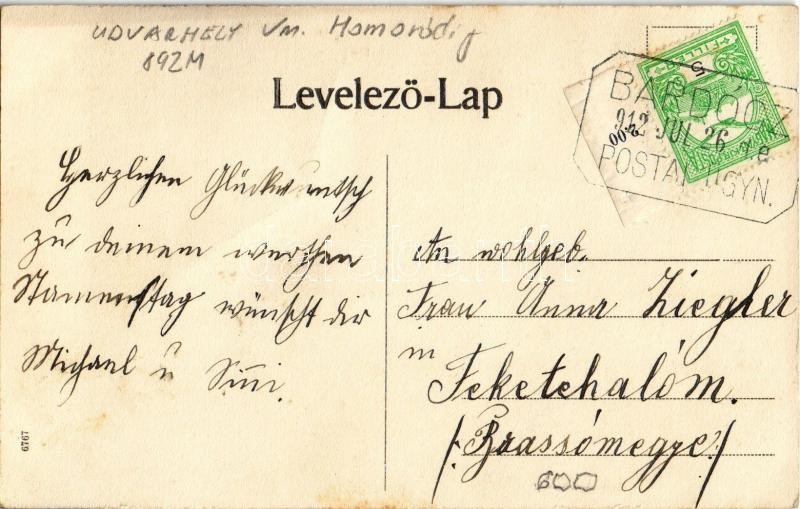 UDVARHELY Vm. Homoródig
892M
Levelező-Lap
FILLÉR
5
BARDÓCZ
912 JUL 26
2.00
POSTAI ÜGYN.
Herzlichen Glückwuntsch
zu deinem werthen
Namenstag wünscht dir
Michael u
An wohlgeb.
Frau Anna Ziegler
in
Feketehalóm.
/:Brassómegye:/
600
6767